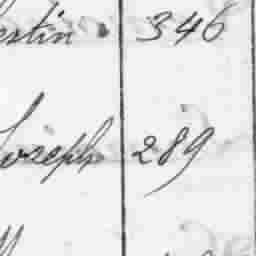 estin 346
Joseph 289